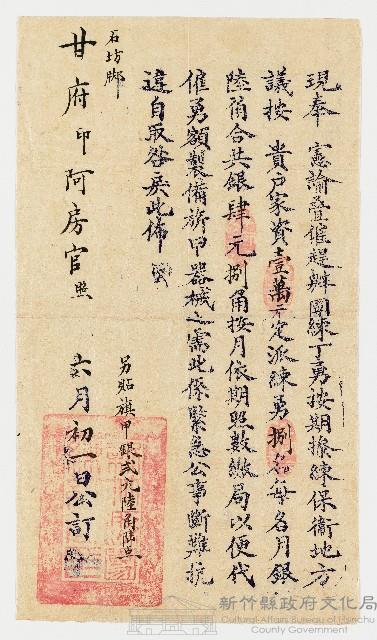 現奉　憲諭疊催趕辦團練丁勇按期操練保衛地方
議按　貴戶家資壹萬元定派練勇捌名每名月銀
陸角合共銀肆元捌角按月依期照數繳局以便代
僱勇額製備旂甲器械之需此係緊急公事斷難抗
違自取咎戾此佈
石坊脚
甘府印阿房官照
另貼旗甲銀弍元陸角
六月初一日公訂
新竹縣政府文化局
Cultural Affairs Bureau of Hsinchu
County Government